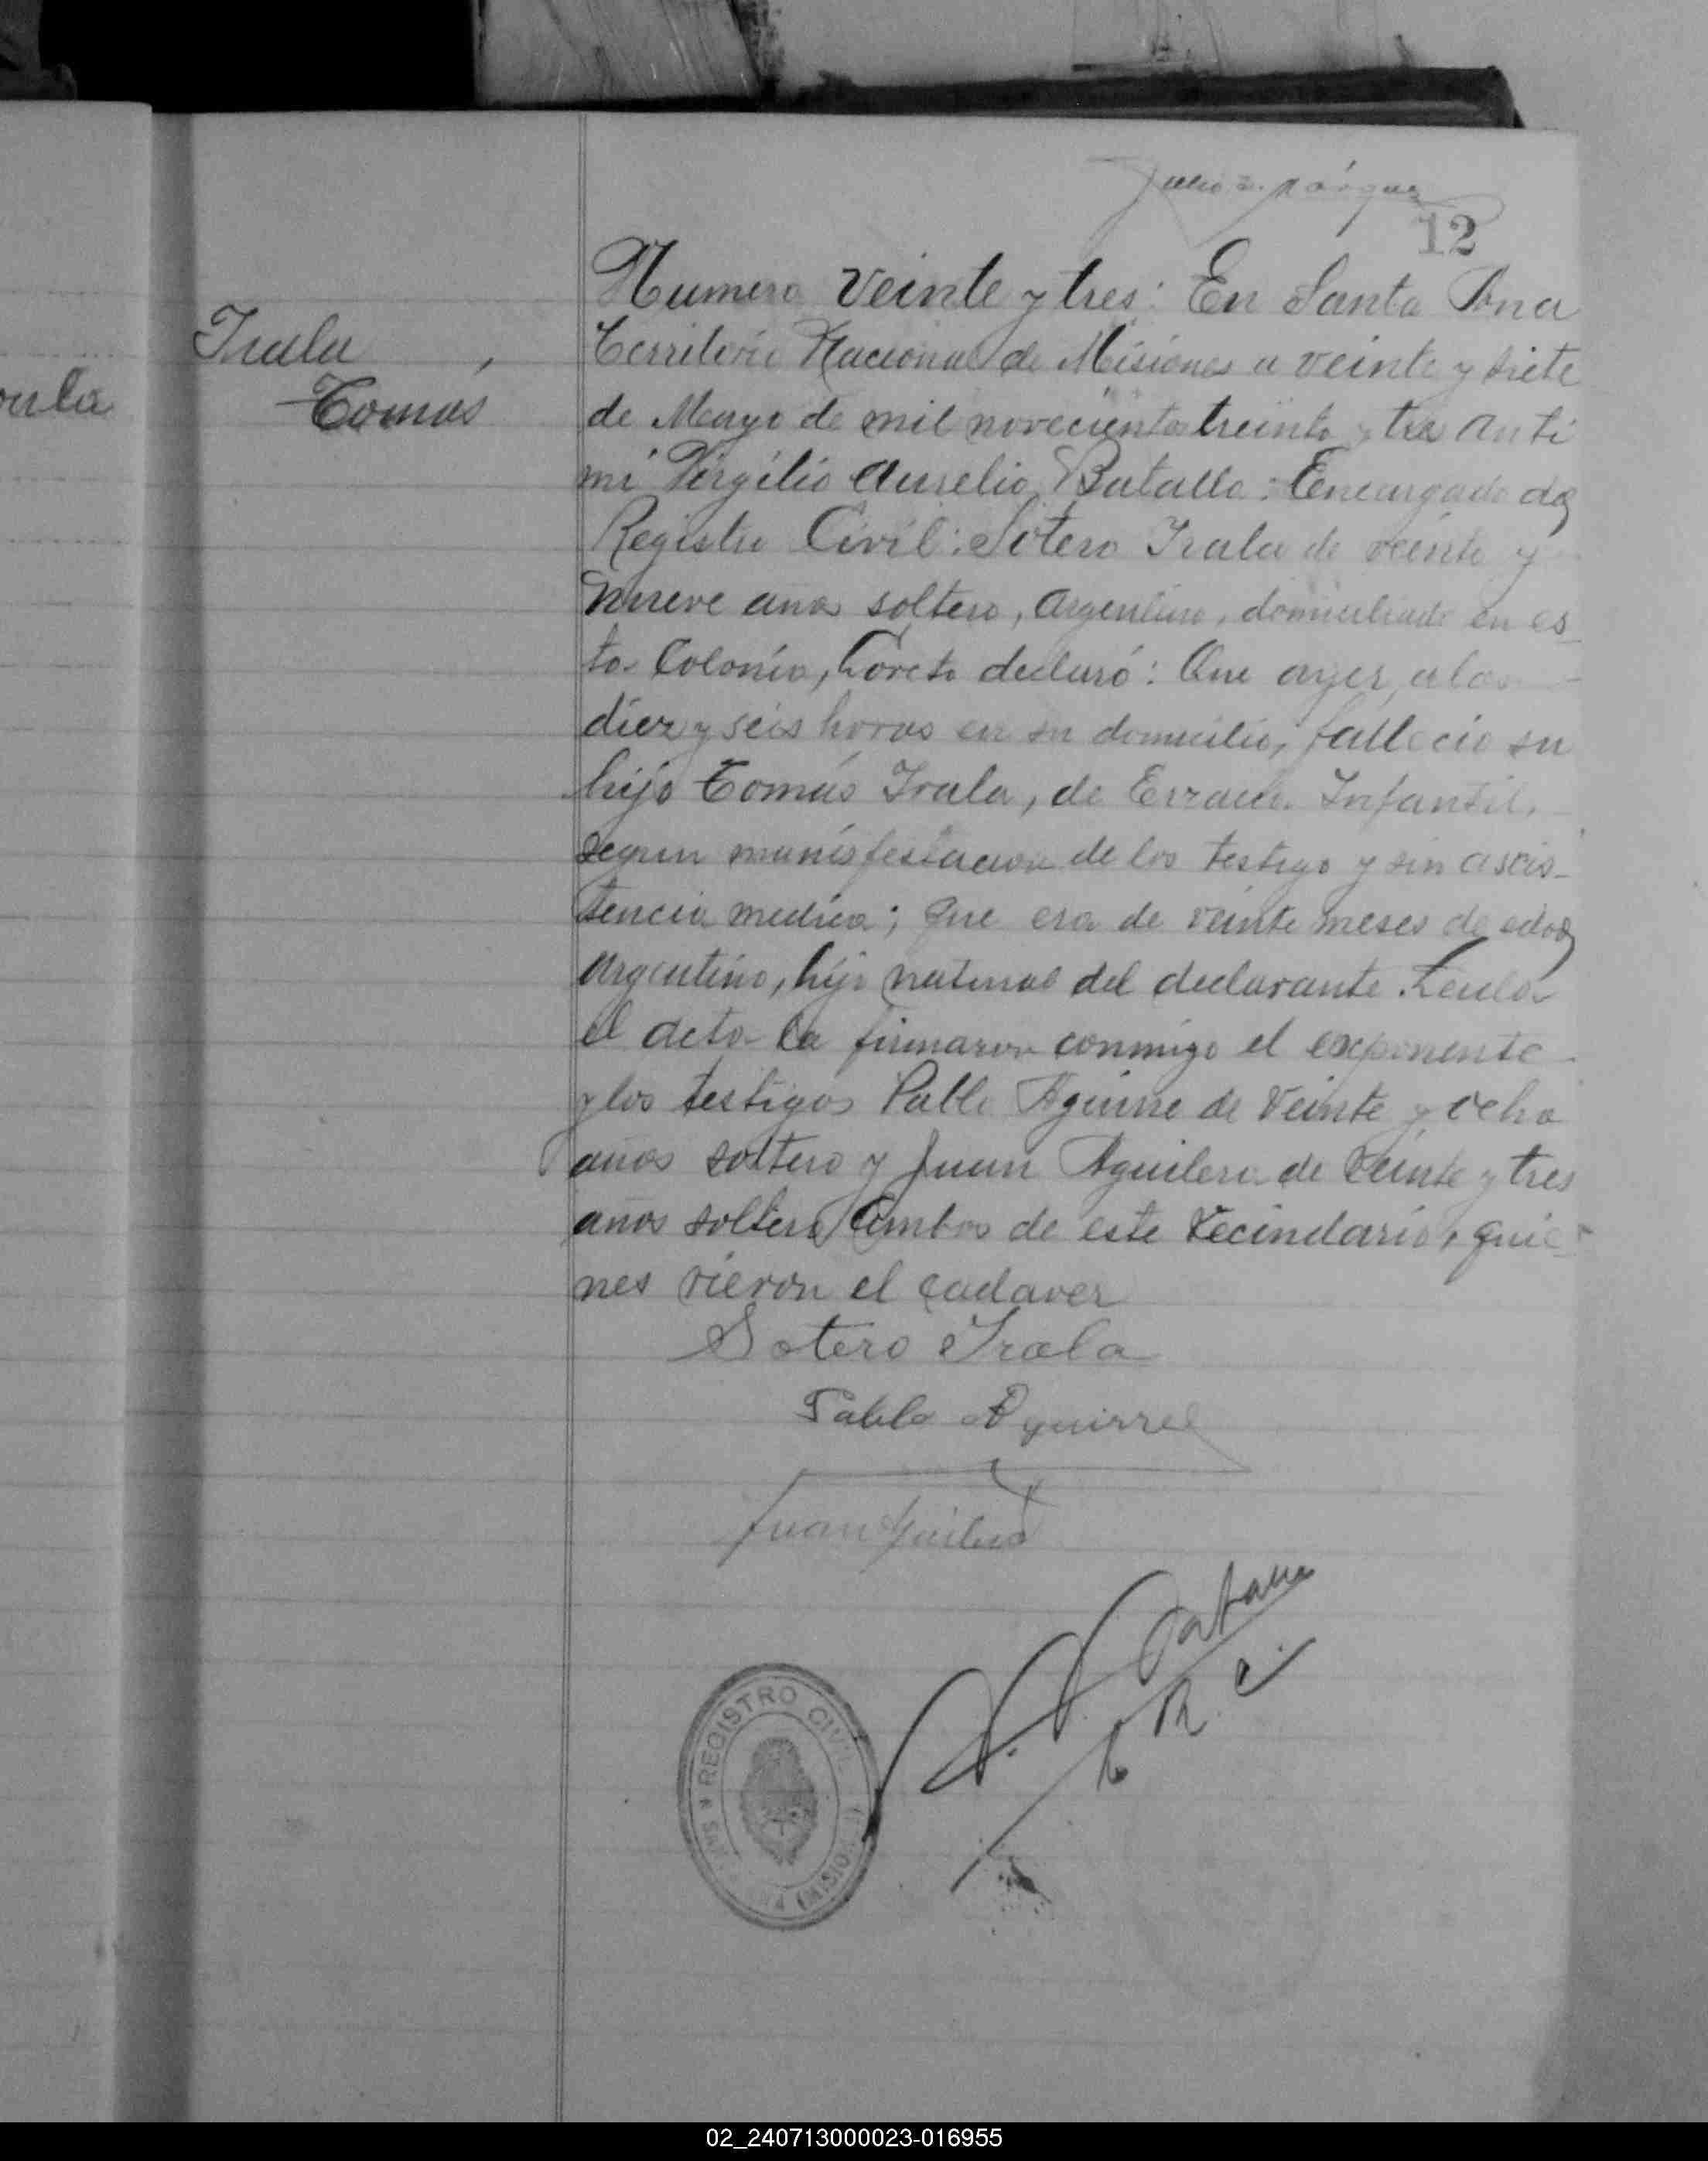 Julio
12
Irala,
Tomás
Numero Veinte y tres: En Santa Ana
Territorio Nacional de Misiones a veinte y siete
de Mayo de mil novecientos treinta y tres Anti
mi Virgilio Aurelio Batalla: Encargado del
Registro Civil: Sotero Irala de veinte y
nueve años soltero, Argentino, domiciliado en es
ta Colonia, Loreto declaró: Que ayer a las
diez y seis horas en su domicilio, fallecio su
hijo Tomás Irala, de Infantil,
segun manisfestacion de los testigo y sin ascis-
tencia medica; que era de veinte meses de edad
Argentino, hijo natural del declarante. Leida
el acta la firmaron conmigo el exponente
y los testigos Pablo Aguirre de Veinte y ocho
años soltero y Juan Aguilera de Veinte y tres
años soltero Ambos de este Vecindario, quie-
nes vieron el cadaver
Sotero Irala
Pablo Aguirre
Juan
REGISTRO CIVIL
SANTA ANA (MISIONES)
R. C.
02_240713000023-016955